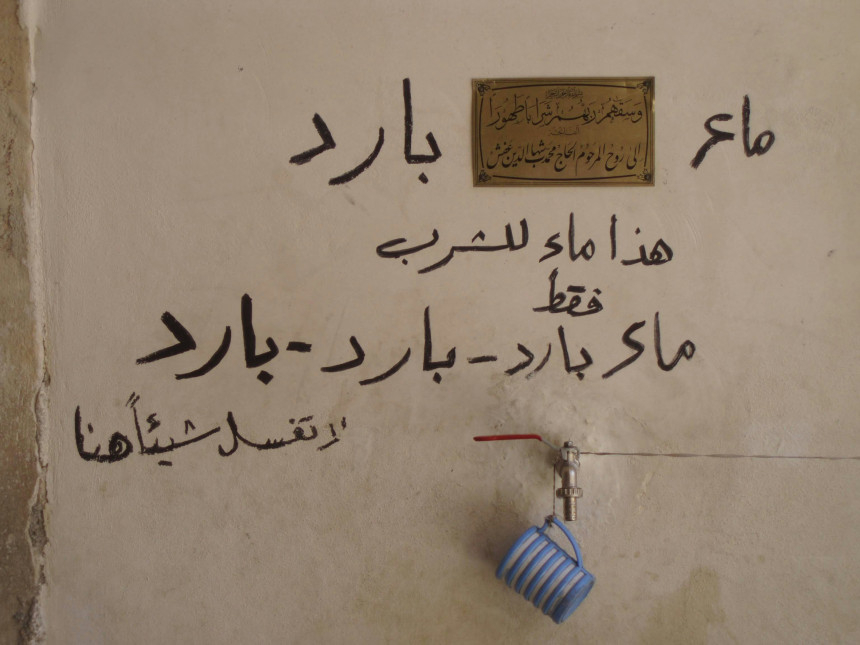 ماء بارد
وسقهم ربهم شرابا طهورا
إلى روح المرحوم الحاج محمد شهاب الدين
هذا ماء للشرب
فقط
ماء بارد - بارد - بارد
لا تغسل شيئاً هنا